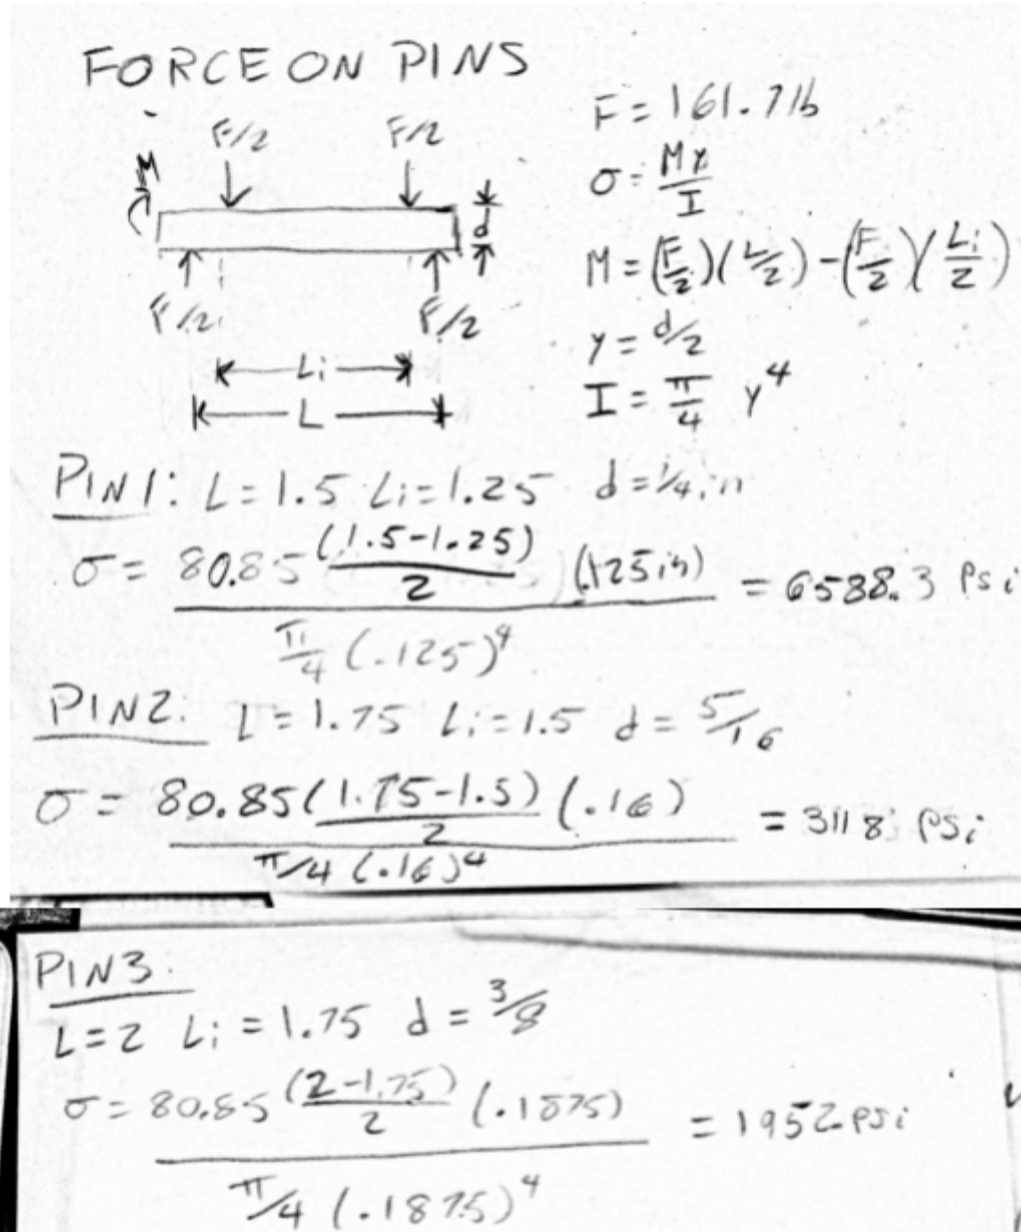 FORCE ON PINS
F = 161.7 lb
M F/2 F/2
σ = My/I
d
M = (F/2)(L/2) - (F/2)(Li/2)
F/2 F/2
y = d/2
Li
I = π/4 y^4
L
PIN 1: L = 1.5 Li = 1.25 d = 1/4 in
σ = 80.85 (1.5-1.25)/2 (.125in) / π/4 (.125)^4 = 6588.3 psi
PIN 2: L = 1.75 Li = 1.5 d = 5/16
σ = 80.85 (1.75-1.5)/2 (.16) / π/4 (.16)^4 = 3118 psi
PIN 3:
L = 2 Li = 1.75 d = 3/8
σ = 80.85 (2-1.75)/2 (.1875) / π/4 (.1875)^4 = 1952 psi